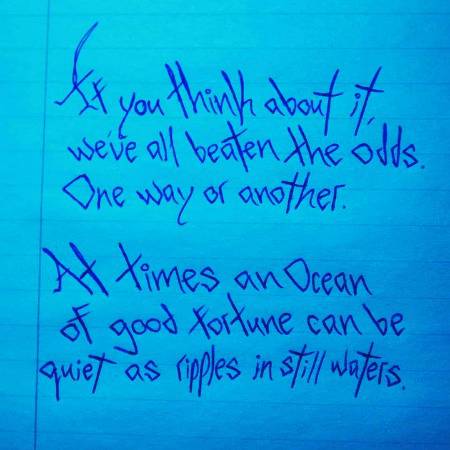 If you think about it,
we've all beaten the odds.
One way or another.
At times an Ocean
of good fortune can be
quiet as ripples in still waters.